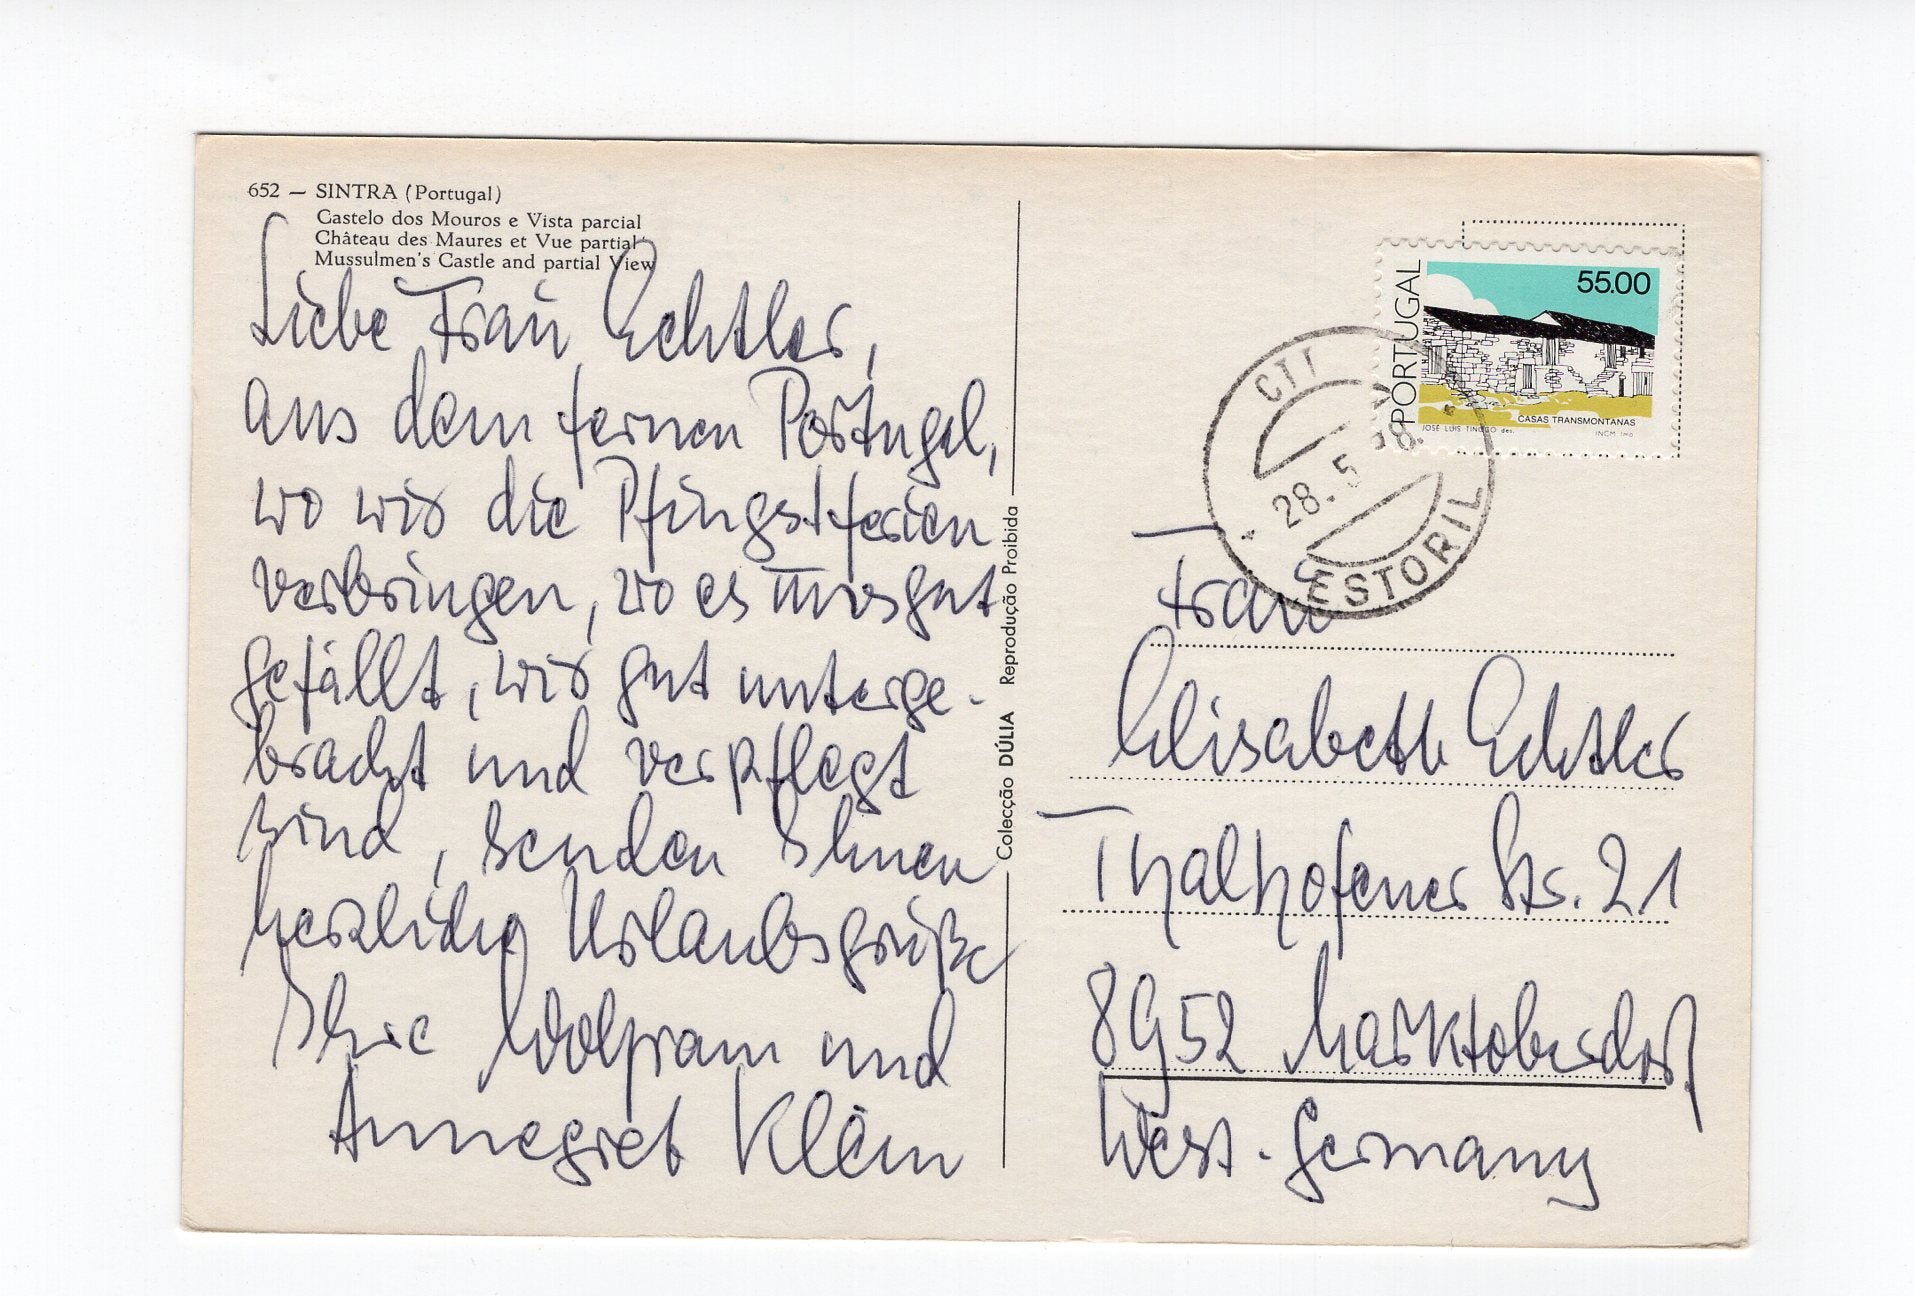 652 — SINTRA (Portugal)
Castelo dos Mouros e Vista parcial
Château des Maures et Vue partial
Mussulmen's Castle and partial View
Liebe Frau Echtler,
aus dem fernen Portugal,
wo wir die Pfingstferien
verbringen, wo es uns gut
gefällt, wir gut unterge-
bracht und verpflegt
sind, senden Ihnen
herzliche Urlaubsgrüße
Ihre Wolfram und
Annegret Klein
Colecção DÚLIA Reprodução Proibida
PORTUGAL
55.00
CASAS TRANSMONTANAS
JOSÉ LUIS TINOCO des.
INCM imp.
CTT
28.5
ESTORIL
Frau
Elisabeth Echtler
Thalhofener Str. 21
8952 Marktoberdorf
West-Germany